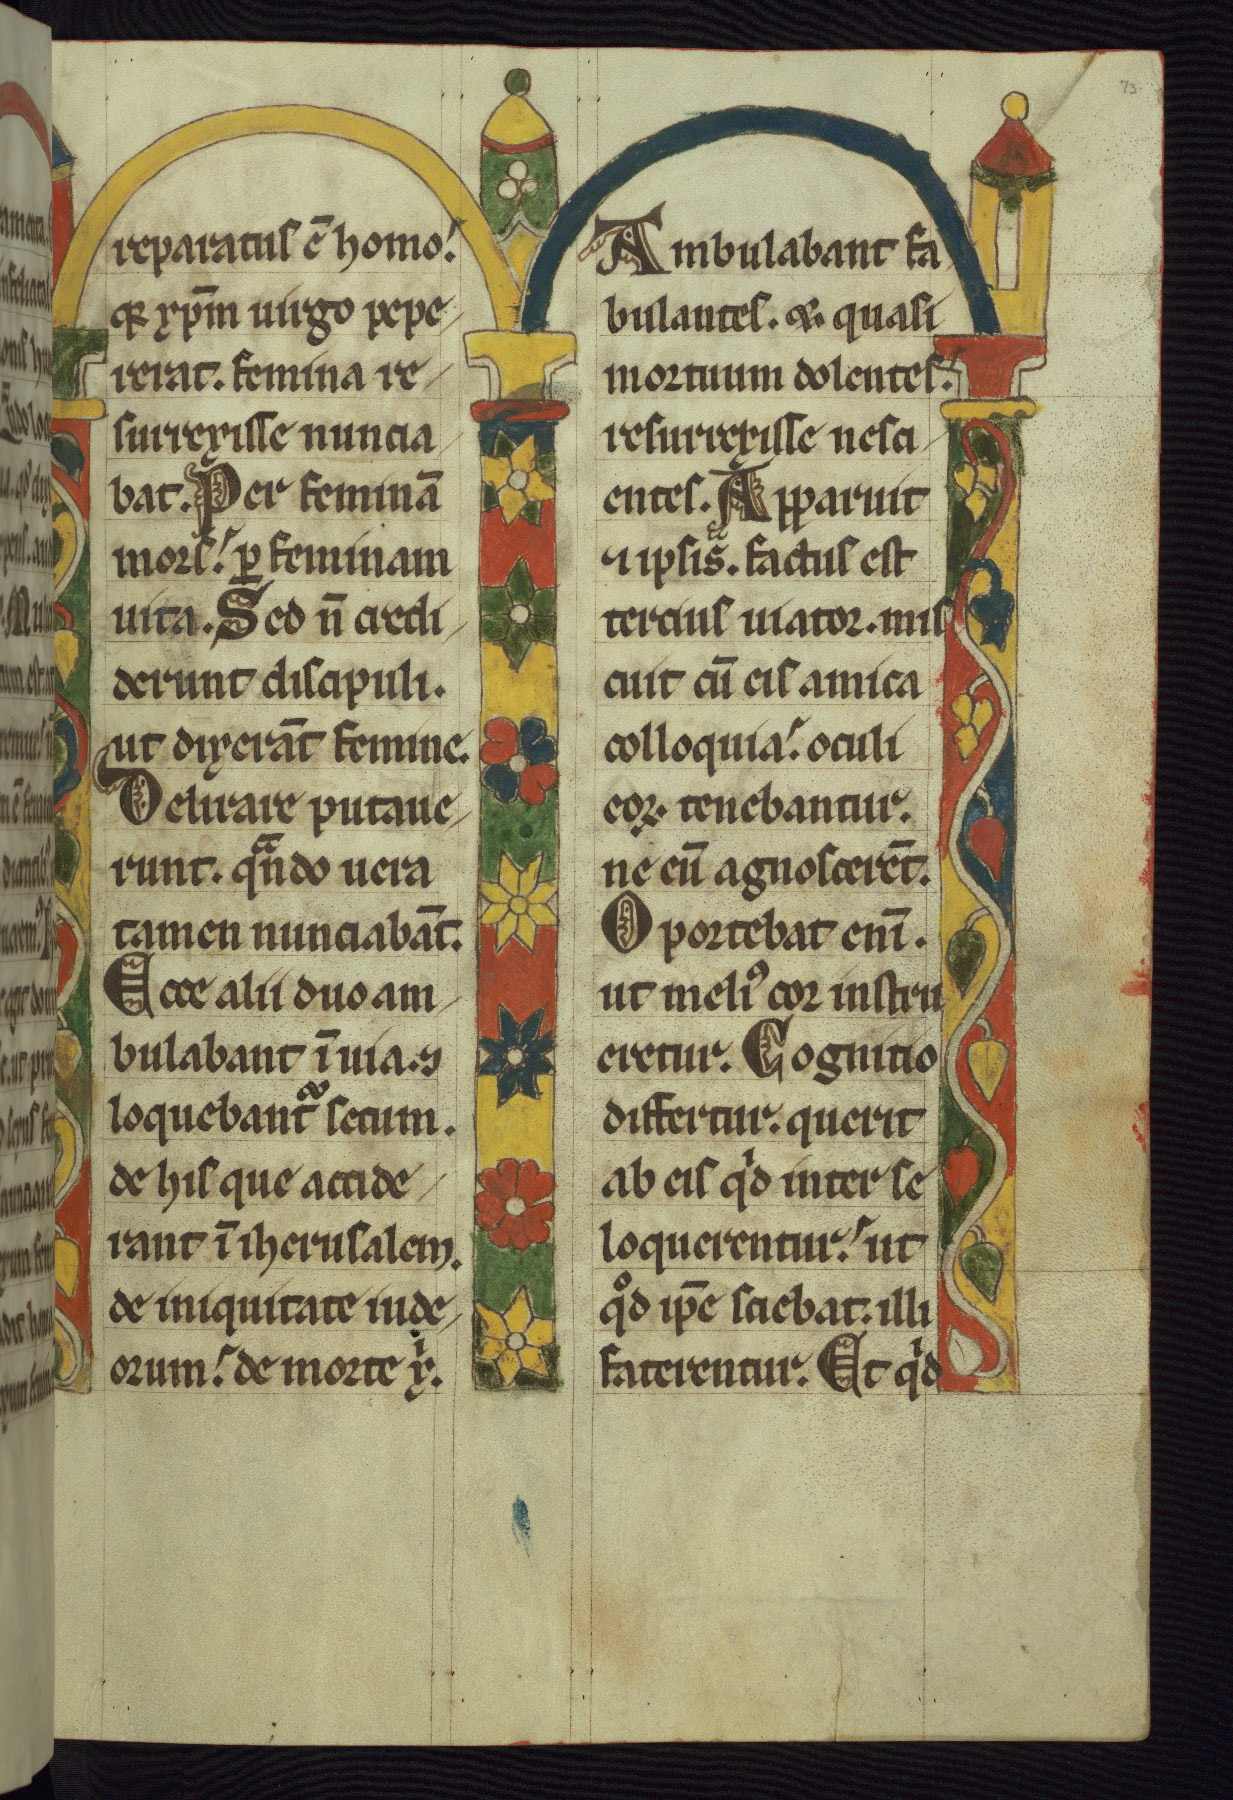 73
reparatus ē homo.
qꝛ xp̄m uirgo pepe
rerat. femina re
surrexisse nuncia
bat. Per feminā
mors. ꝑ feminam
uita. Sed n̄ credi
derunt discipuli.
ut dixerāt femine.
Delirare putaue
runt. qn̄do uera
tamen nunciabāt.
Ecce alii duo am
bulabant ī uia. ⁊
loquebant᷑ secum.
de his que accide
rant ī iherusalem.
de iniquitate iude
orum. de morte xͥ.
Ambulabant fa
bulantes. ⁊ quasi
mortuum dolentes.
resurrexisse nesci
entes. Apparuit
⁊ ipsis. factus est
tercius uiator. mis
cuit cū eis amica
colloquia. oculi
eoꝝ tenebantur.
ne eū agnoscerēt.
Oportebat enī.
ut meliꝰ cor instru
eretur. Cognitio
differtur. querit
ab eis qͥd inter se
loquerentur. ut
qͦd ip̄e sciebat. illi
faterentur. Et qͥd